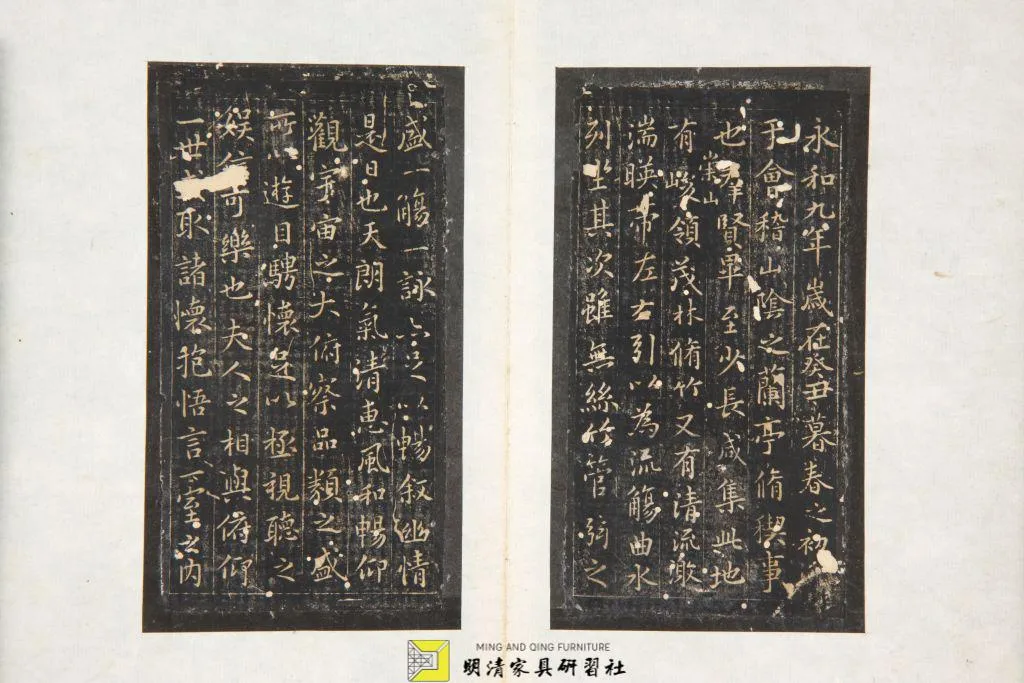 永和九年歲在癸丑暮春之初
于會稽山陰之蘭亭脩稧事
也羣賢畢至少長咸集此地
有崇山峻領茂林脩竹又有清流激
湍暎帶左右引以為流觴曲水
列坐其次雖無絲竹管弦之
盛一觴一詠亦足以暢敘幽情
是日也天朗氣清惠風和暢仰
觀宇宙之大俯察品類之盛
所以遊目騁懷足以極視聽之
娛信可樂也夫人之相與俯仰
一世或取諸懷抱悟言一室之內
MING AND QING FURNITURE
明清家具研習社